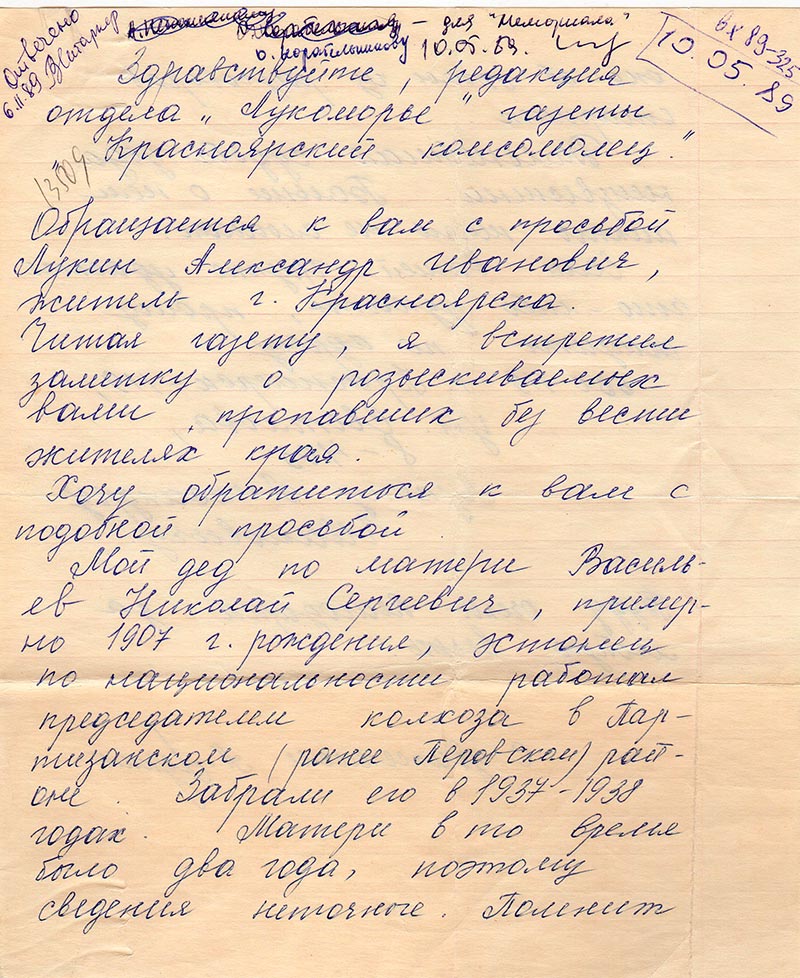 Отвечено
6.11.89
– для "Мемориала"
о. Корабельникову 10.05.89.
вх 89-325
10.05.89
Здравствуйте, редакция
отдела „Лукоморье" газеты
„Красноярский комсомолец."
13509
Обращается к вам с просьбой
Лукин Александр Иванович,
житель г. Красноярска.
Читая газету, я встретил
заметку о розыскиваемых
вами, пропавших без вести
жителях края.
Хочу обратиться к вам с
подобной просьбой.
Мой дед по матери Василь-
ев Николай Сергеевич, пример-
но 1907 г. рождения, эстонец
по национальности работал
председателем колхоза в Пар-
тизанском (ранее Перовском) рай-
оне. Забрали его в 1937-1938
годах. Матери в то время
было два года, поэтому
сведения неточные. Помнит